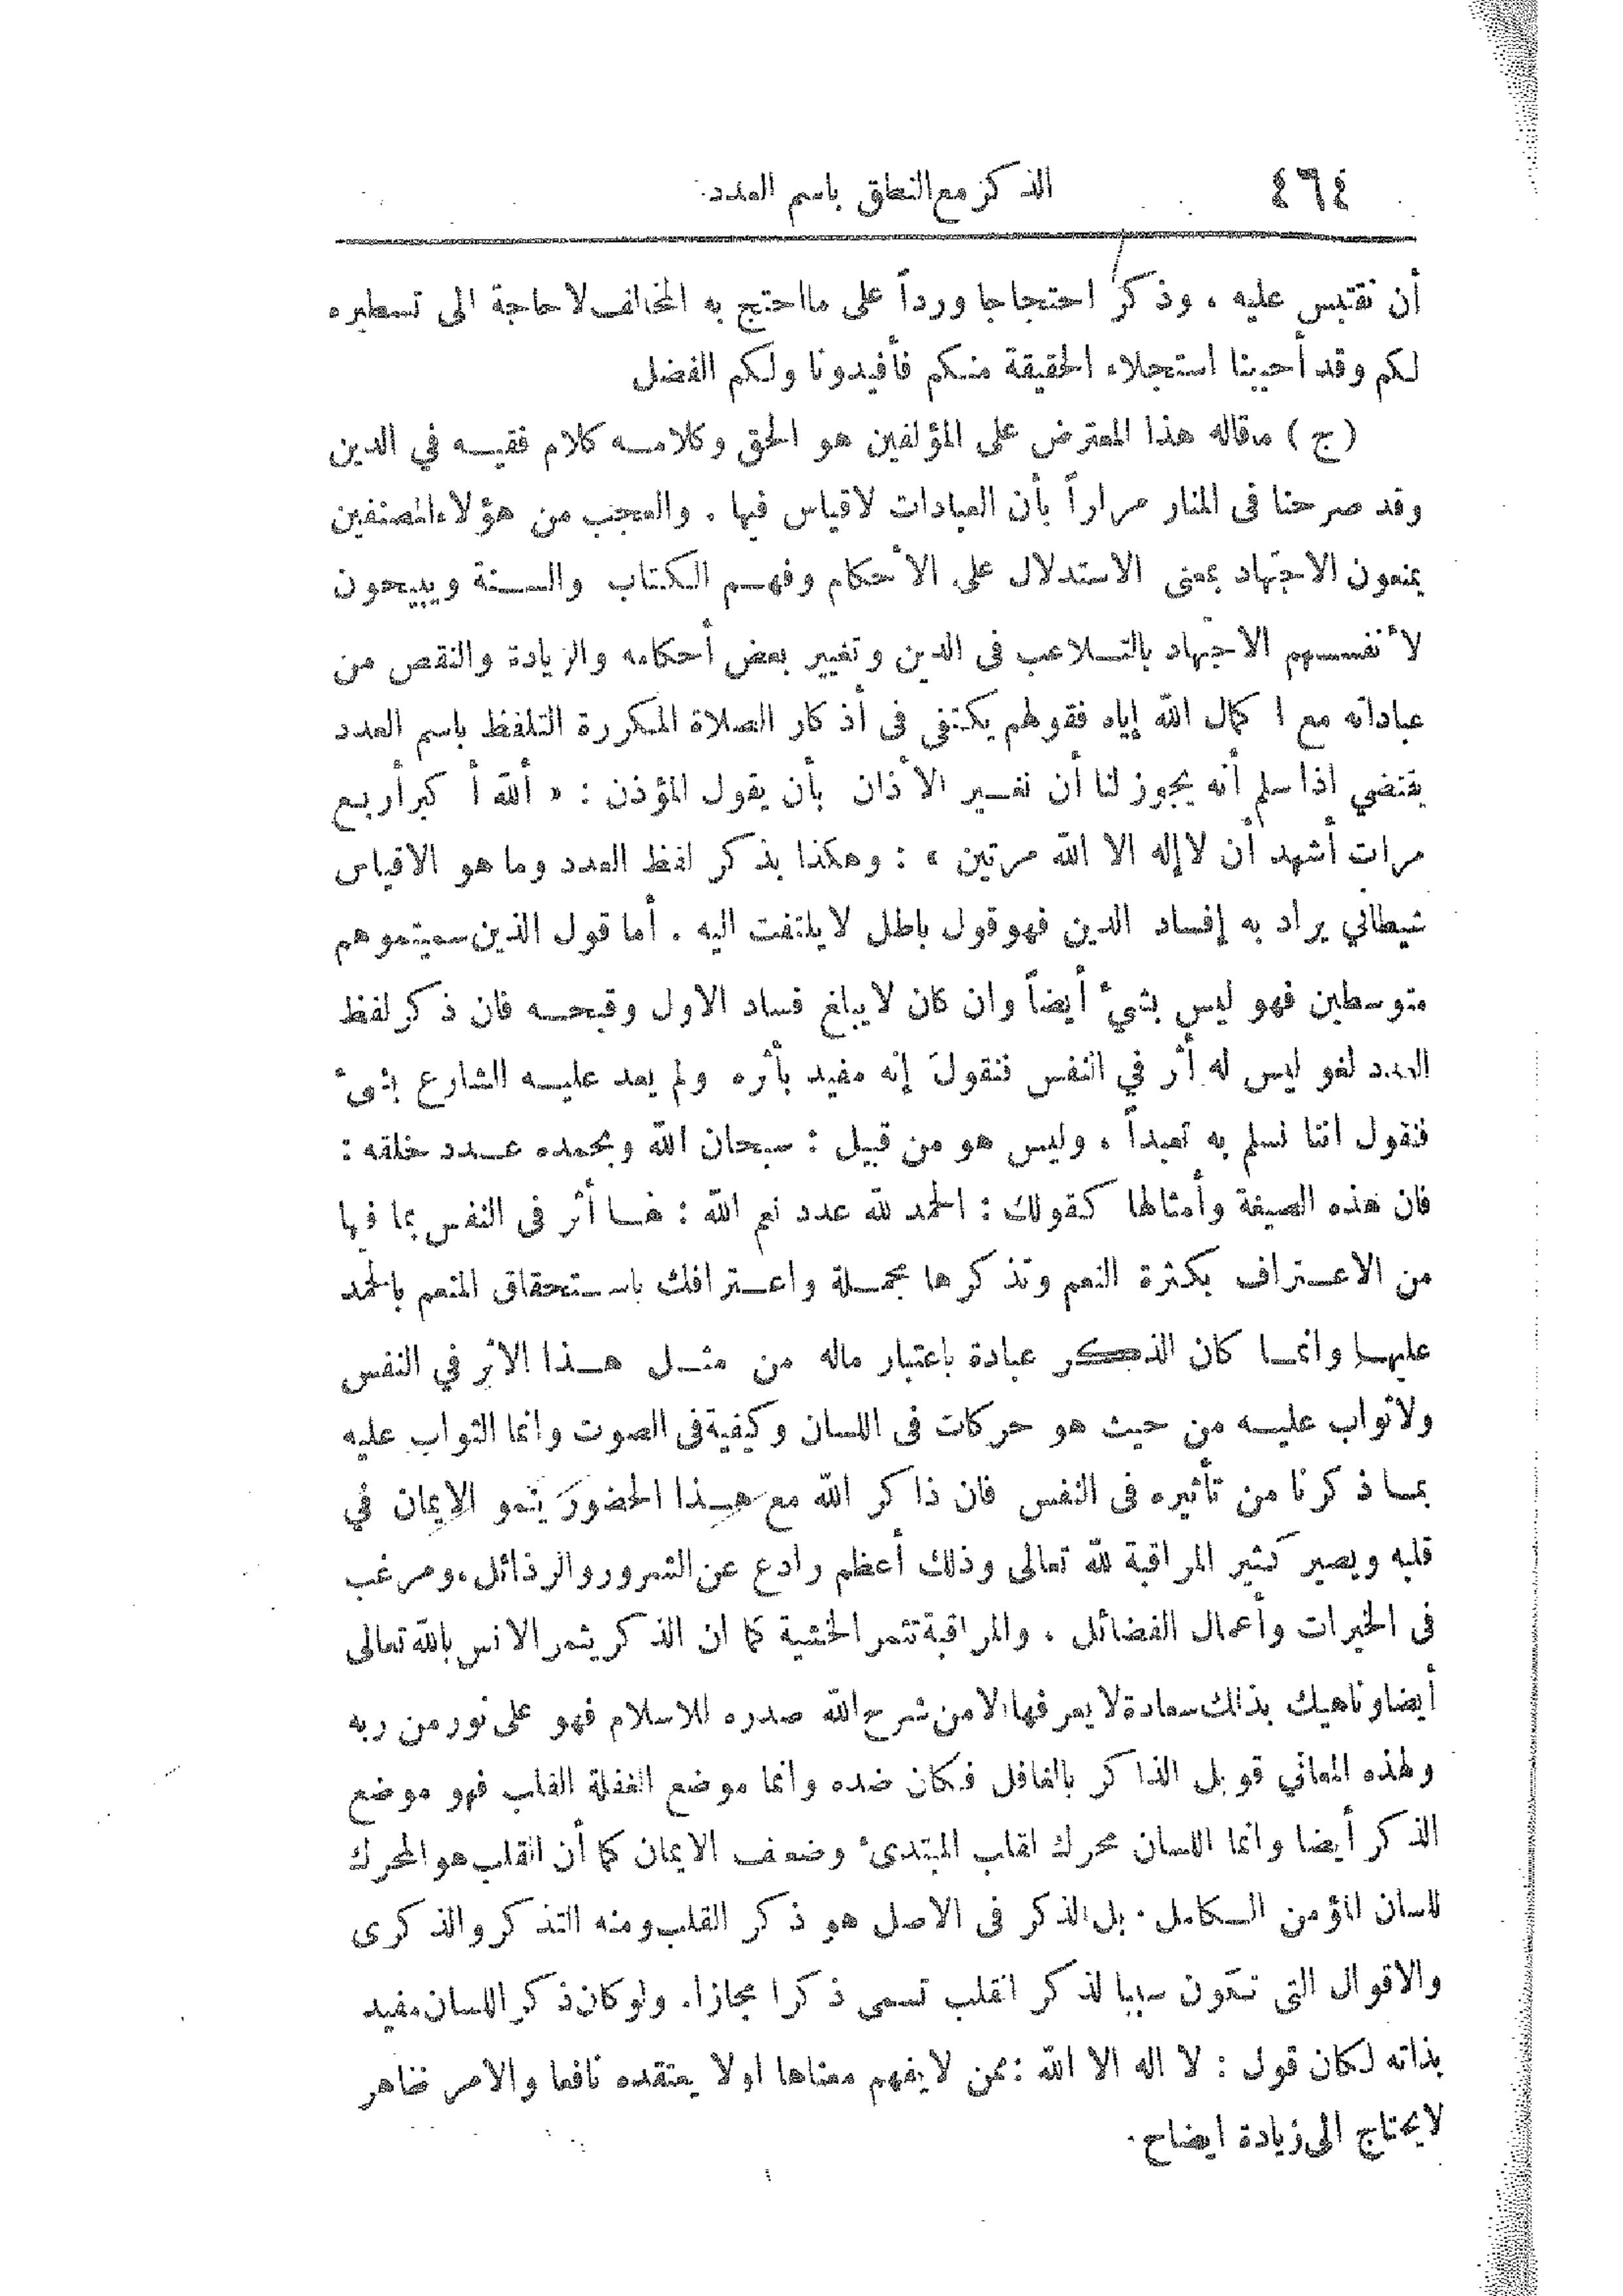 ٤٦٤ الذكر مع النطق باسم العدد
أن نقتبس عليه ، وذكر احتجاجا ورداً على ما احتج به المخالف لا حاجة الى تسطيره
لكم وقد أحببنا استجلاء الحقيقة منكم فأفيدونا ولكم الفضل
( ج ) ماقاله هذا المعترض على المؤلفين هو الحق وكلامه كلام فقيه في الدين
وقد صرحنا فى المنار مراراً بأن العبادات لاقياس فيها . والعجب من هؤلاء المصنفين
يمنعون الاجتهاد بمعنى الاستدلال على الأحكام وفهم الكتاب والسنة ويبيحون
لأنفسهم الاجتهاد بالتلاعب فى الدين وتغيير بعض أحكامه والزيادة والنقص من
عباداته مع اكمال الله إياه فقولهم يكتفى فى أذكار الصلاة المكررة التلفظ باسم العدد
يقتضي اذا سلم أنه يجوز لنا أن نغير الأذان بأن يقول المؤذن : « ألله أكبر أربع
مرات أشهد أن لاإله الا الله مرتين » : وهكذا بذكر لفظ العدد وما هو الاقياس
شيطاني يراد به إفساد الدين فهو قول باطل لا يلتفت اليه . أما قول الذين سميتموهم
متوسطين فهو ليس بشيء أيضاً وان كان لا يبلغ فساد الاول وقبحه فان ذكر لفظ
العدد لغو ليس له أثر في النفس فنقول إنه مفيد بأثره ولم يعد عليه الشارع بشيء
فنقول اننا نسلم به تعبداً ، وليس هو من قبيل : سبحان الله وبحمده عدد خلقه :
فان هذه الصيغة وأمثالها كقولك : الحمد لله عدد نعم الله : لها أثر فى النفس بما فيها
من الاعتراف بكثرة النعم وتذكرها مجملة واعترافك باستحقاق المنعم بالحمد
عليها وانما كان الذكر عبادة باعتبار ماله من مثل هذا الاثر في النفس
ولاثواب عليه من حيث هو حركات فى اللسان وكيفية فى الصوت وانما الثواب عليه
بما ذكرنا من تأثيره فى النفس فان ذاكر الله مع هذا الحضور ينمو الايمان في
قلبه ويصير كثير المراقبة لله تعالى وذلك أعظم رادع عن الشرور والرذائل ، ومرغب
فى الخيرات وأعمال الفضائل . والمراقبة تثمر الخشية كما ان الذكر يثمر الانس بالله تعالى
أيضا وناهيك بذلك سعادة لا يعرفها الا من شرح الله صدره للاسلام فهو على نور من ربه
ولهذه المعاني قوبل الذاكر بالغافل فكان ضده وانما موضع الغفلة القلب فهو موضع
الذكر أيضا وانما اللسان محرك لقلب المبتدئ وضعف الايمان كما أن القلب هو المحرك
للسان المؤمن الكامل . بل الذكر فى الاصل هو ذكر القلب ومنه التذكر والذكرى
والاقوال التى تكون سببا لذكر القلب تسمى ذكرا مجازا. ولو كان ذكر اللسان مفيد
بذاته لكان قول : لا اله الا الله : ممن لا يفهم معناها او لا يعتقده نافعا والامر ظاهر
لا يحتاج الى زيادة ايضاح .